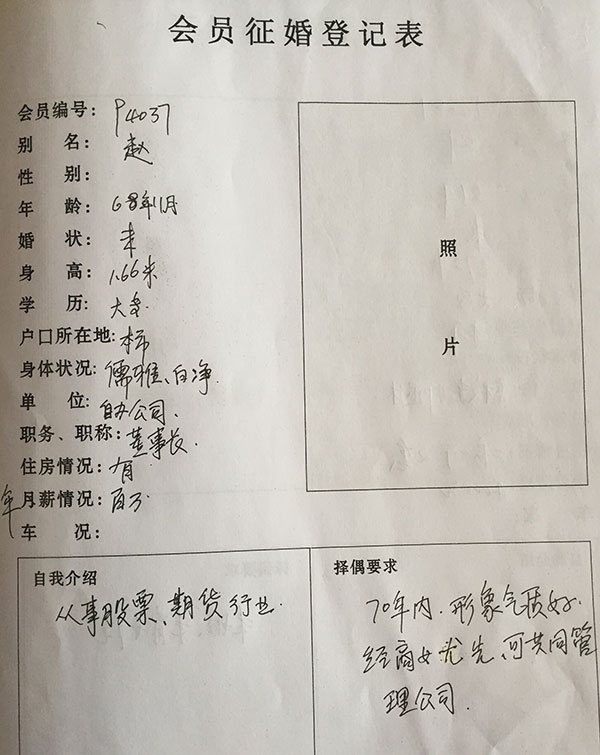 会员征婚登记表
会员编号: P4037
别 名: 赵
性 别:
年 龄: 68年11月
婚 状: 未
身 高: 1.66米
学 历: 大专
户口所在地: 本市
身体状况: 儒雅、白净
单 位: 自办公司.
职务、职称: 董事长.
住房情况: 有
年 月薪情况: 百万
车 况:
照
片
自我介绍
从事股票、期货行业.
择偶要求
70年内.形象气质好.
经商女优先、可共同管
理公司.